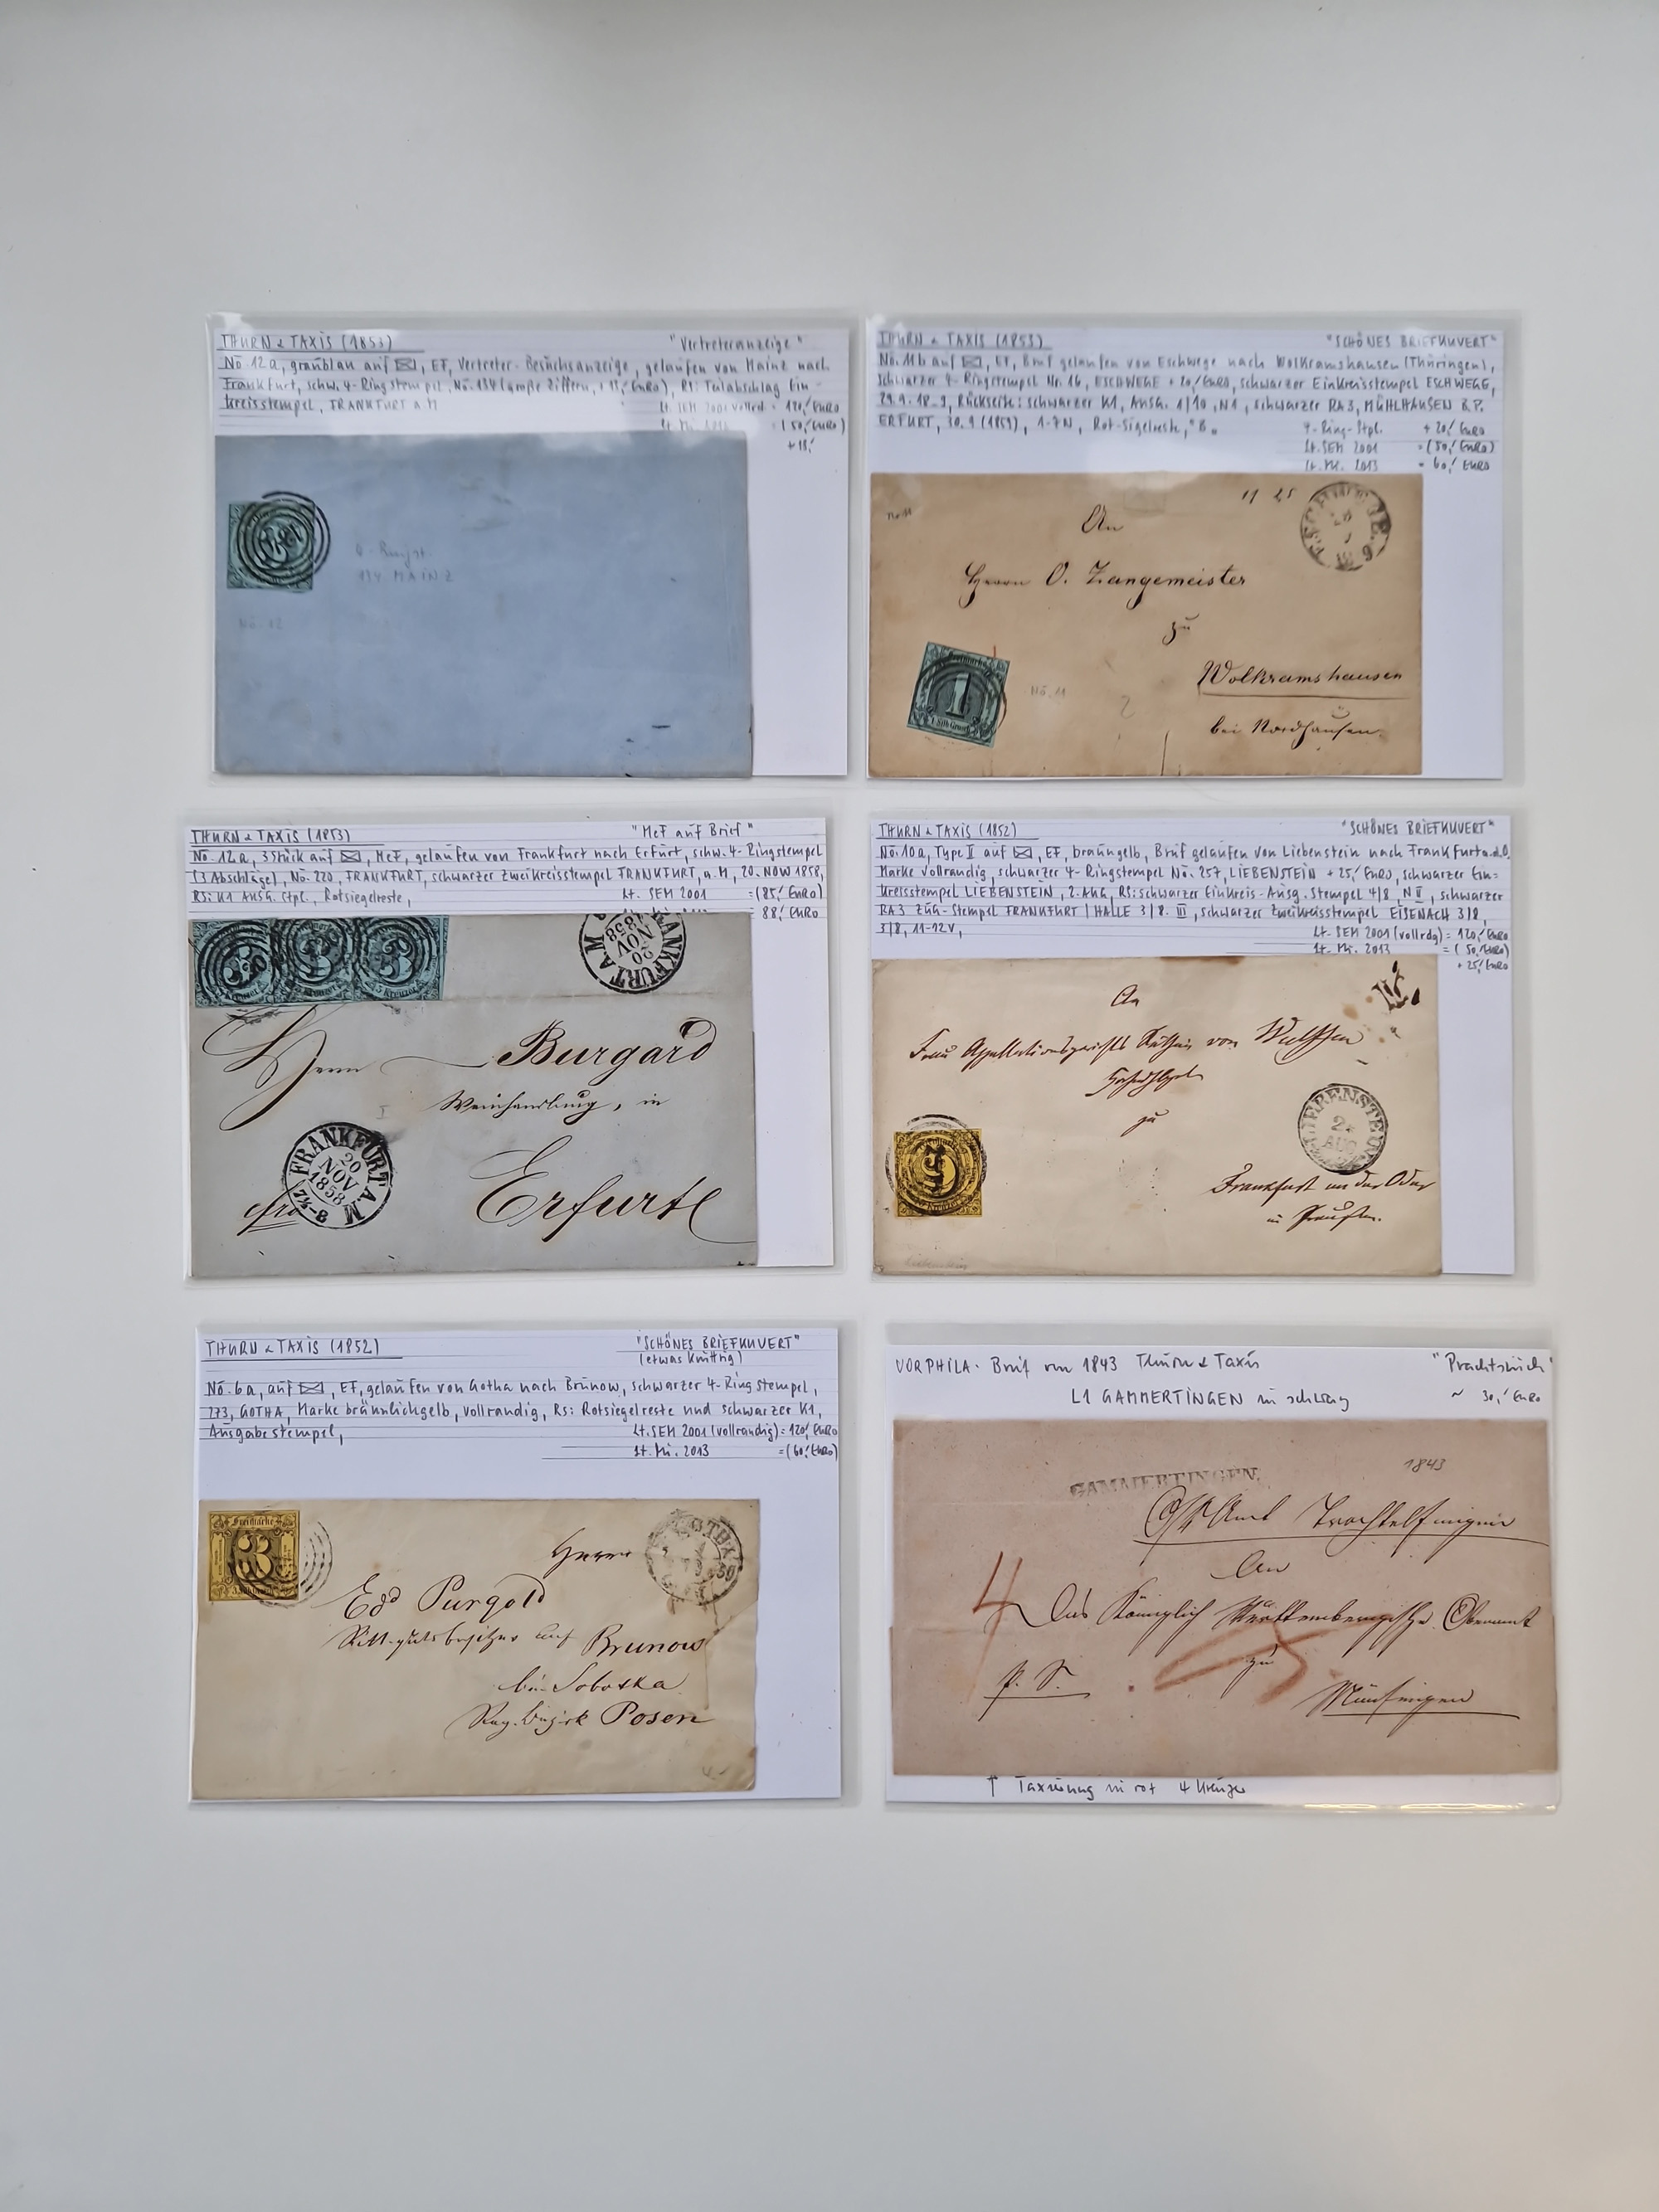 THURN & TAXIS (1853)
"Vertreteranzeige"
No. 12a, graublau auf ✉, EF, Vertreter-Besuchsanzeige, gelaufen von Mainz nach
Frankfurt, schw. 4-Ringstempel, No. 134 (große Ziffern, + 15,- Euro), RS: Teilabschlag Ein-
kreisstempel, FRANKFURT a M
Lt. SEM 2001 vollrd. = 120,- Euro
Lt. Mi. = (50,- Euro)
134
4-Ringst.
134 MAINZ
No. 12
THURN & TAXIS (1853)
"SCHÖNES BRIEFKUVERT"
No. 11b auf ✉, EF, Brief gelaufen von Eschwege nach Wolkramshausen (Thüringen),
schwarzer 4-Ringstempel Nr. 16, ESCHWEGE + 20,- Euro, schwarzer Einkreisstempel ESCHWEGE,
29.9. 18-9, Rückseite: schwarzer K1, Ausg. 1/10, N1, schwarzer RA3, MÜHLHAUSEN B.P.
ERFURT, 30.9 (1859), 1-7N, Rot-Sigelreste, "B"
4-Ring-Stpl. + 20,- Euro
Lt. SEM 2001 = (50,- Euro)
Lt. Mi. 2013 = 60,- Euro
No. 11
11 25
ESCHWEGE
An
Herrn O. Zangemeister
zu
Wolkramshausen
bei Nordhausen.
Freimarke
1
1 Silb. Grosch.
No. 11
2
THURN & TAXIS (1853)
"MeF auf Brief"
No. 12a, 3 Stück auf ✉, MeF, gelaufen von Frankfurt nach Erfurt, schw. 4-Ringstempel
(3 Abschläge), No. 220, FRANKFURT, schwarzer Zweikreisstempel FRANKFURT, a. M, 20. NOV 1858,
RS: K1 Ausg. Stpl., Rotsiegelreste,
Lt. SEM 2001 = (85,- Euro)
= 88,- Euro
3 Kreuzer
FRANKFURT A.M
20
NOV
1858
Herrn Burgard
Weinhandlung, in
Erfurt
FRANKFURT A.M
20
NOV
1858
7½-8
fro
THURN & TAXIS (1852)
"SCHÖNES BRIEFKUVERT"
No. 10a, Type II auf ✉, EF, braungelb, Brief gelaufen von Liebenstein nach Frankfurt a.d.O,
Marke vollrandig, schwarzer 4-Ringstempel No. 257, LIEBENSTEIN + 25,- Euro, schwarzer Ein-
kreisstempel LIEBENSTEIN, 2. AUG, RS: schwarzer Einkreis-Ausg. Stempel 4/8, N II, schwarzer
RA3 Zug-Stempel FRANKFURT | HALLE 3/8. III, schwarzer Zweikreisstempel EISENACH 3/8,
3/8, 11-12V,
Lt. SEM 2001 (vollrdg) = 120,- Euro
Lt. Mi. 2013 = (50,- Euro)
+ 25,- Euro
An
Frau Appellationsgerichts Räthin von Wulffen
Hochwohlgeb.
zu
LIEBENSTEIN
2.
AUG
Frankfurt an der Oder
in Preußen.
Liebenstein
THURN & TAXIS (1852)
"SCHÖNES BRIEFKUVERT"
(etwas knittrig)
No. 6a, auf ✉, EF, gelaufen von Gotha nach Brunow, schwarzer 4-Ringstempel,
273, GOTHA, Marke bräunlichgelb, vollrandig, Rs: Rotsiegelreste und schwarzer K1,
Ausgabestempel,
Lt. SEM 2001 (vollrandig) = 120,- Euro
Lt. Mi. 2013 = (60,- Euro)
Freimarke
3
GOTHA
Herrn
Edd Purgold
Rittergutsbesitzer auf Brunow
bei Sobotka
Reg. Bezirk Posen
VORPHILA. Brief von 1843 Thurn & Taxis
"Prachtstück"
L1 GAMMERTINGEN in schwarz
~ 30,- Euro
GAMMERTINGEN.
1843
O/A Amt Trochtelfingen
An
4
Das Königlich Württembergische Oberamt
zu
P. S.
Münsingen
↑ Taxierung in rot 4 Kreuzer